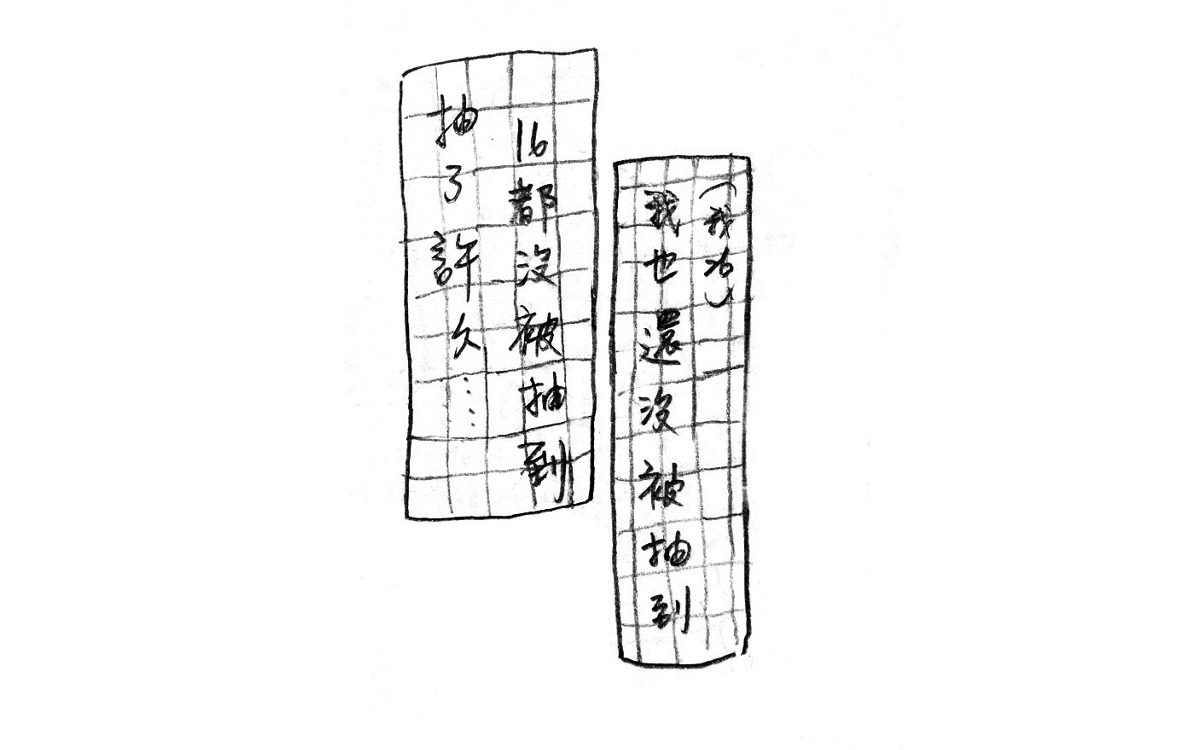 抽了許久……
16都沒被抽到
我也還沒被抽到
（我26）